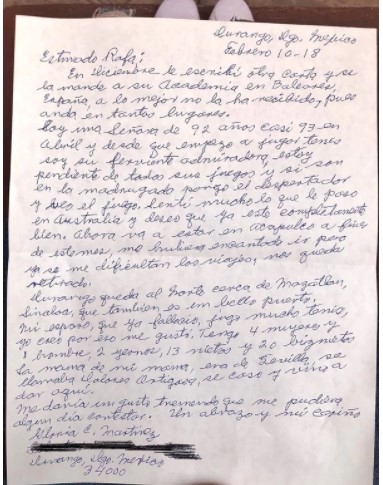 Durango, Dgo, Mexico
Febrero 10-18
Estimado Rafa:
En diciembre le escribí otra carta y se
la mande a su Academia en Baleares,
España, a lo mejor no la ha recibido, pues
anda en tantos lugares.
Soy una Señora de 92 años casi 93 en
Abril y desde que empezo a jugar tenis
soy su ferviente admiradora, estoy
pendiente de todos sus juegos y si son
en la madrugada pongo el despertador
y veo el juego. Sentí mucho lo que le paso
en Australia y deseo que ya este completamente
bien. Ahora va a estar en Acapulco a fines
de este mes, me hubiera encantado ir pero
ya se me dificultan los viajes, nos queda
retirado.
Durango queda al Norte cerca de Mazatlán,
Sinaloa, que tambien es un bello puerto.
Mi esposo, que ya fallecio, jugo mucho tenis,
yo creo por eso me gustó. Tengo 4 mujeres y
1 hombre, 2 yernos, 13 nietos y 20 bisnietos
La mamá de mi mamá, era de Sevilla, se
llamaba Dolores Ortigosa, se caso y vino a
dar aqui.
Me daría un gusto tremendo que me pudiera
algun dia contestar. Un abrazo y mi cariño
Gloria E. Martinez
Durango, Dgo, Mexico
34000